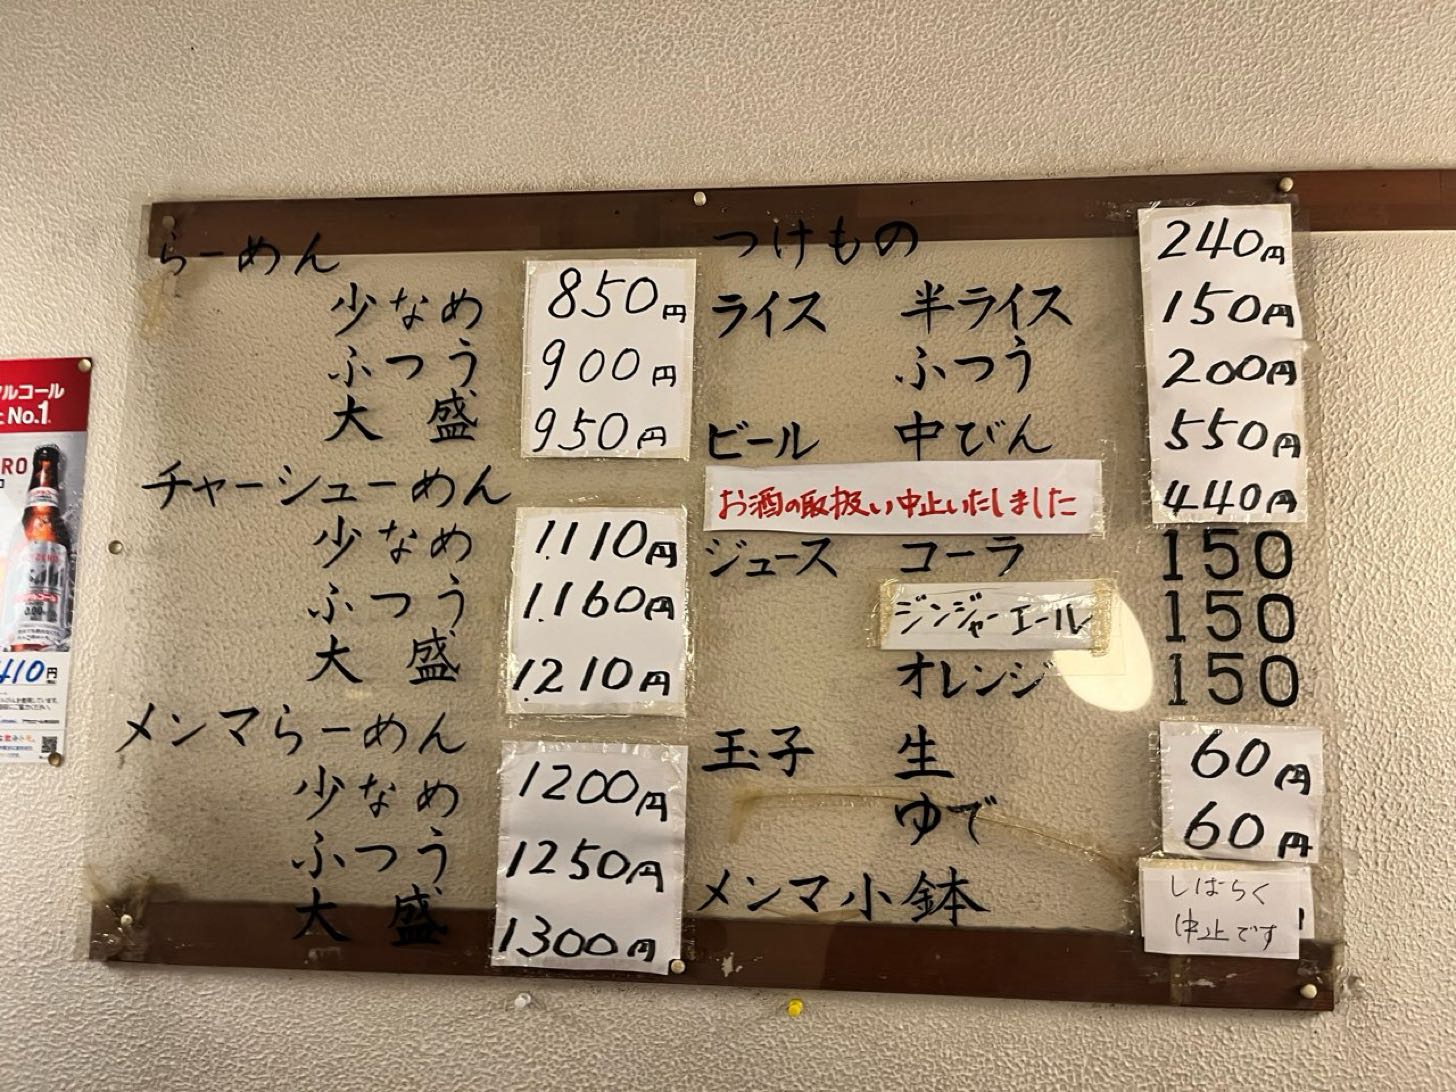 らーめん
少なめ 850円
ふつう 900円
大盛 950円
チャーシューめん
少なめ 1.110円
ふつう 1.160円
大盛 1.210円
メンマらーめん
少なめ 1200円
ふつう 1250円
大盛 1300円
つけもの 240円
ライス 半ライス 150円
ふつう 200円
ビール 中びん 550円
お酒の取扱い中止いたしました 440円
ジュース コーラ 150
ジンジャーエール 150
オレンジ 150
玉子 生 60円
ゆで 60円
メンマ小鉢 しばらく
中止です
ルコール
No.1
410円